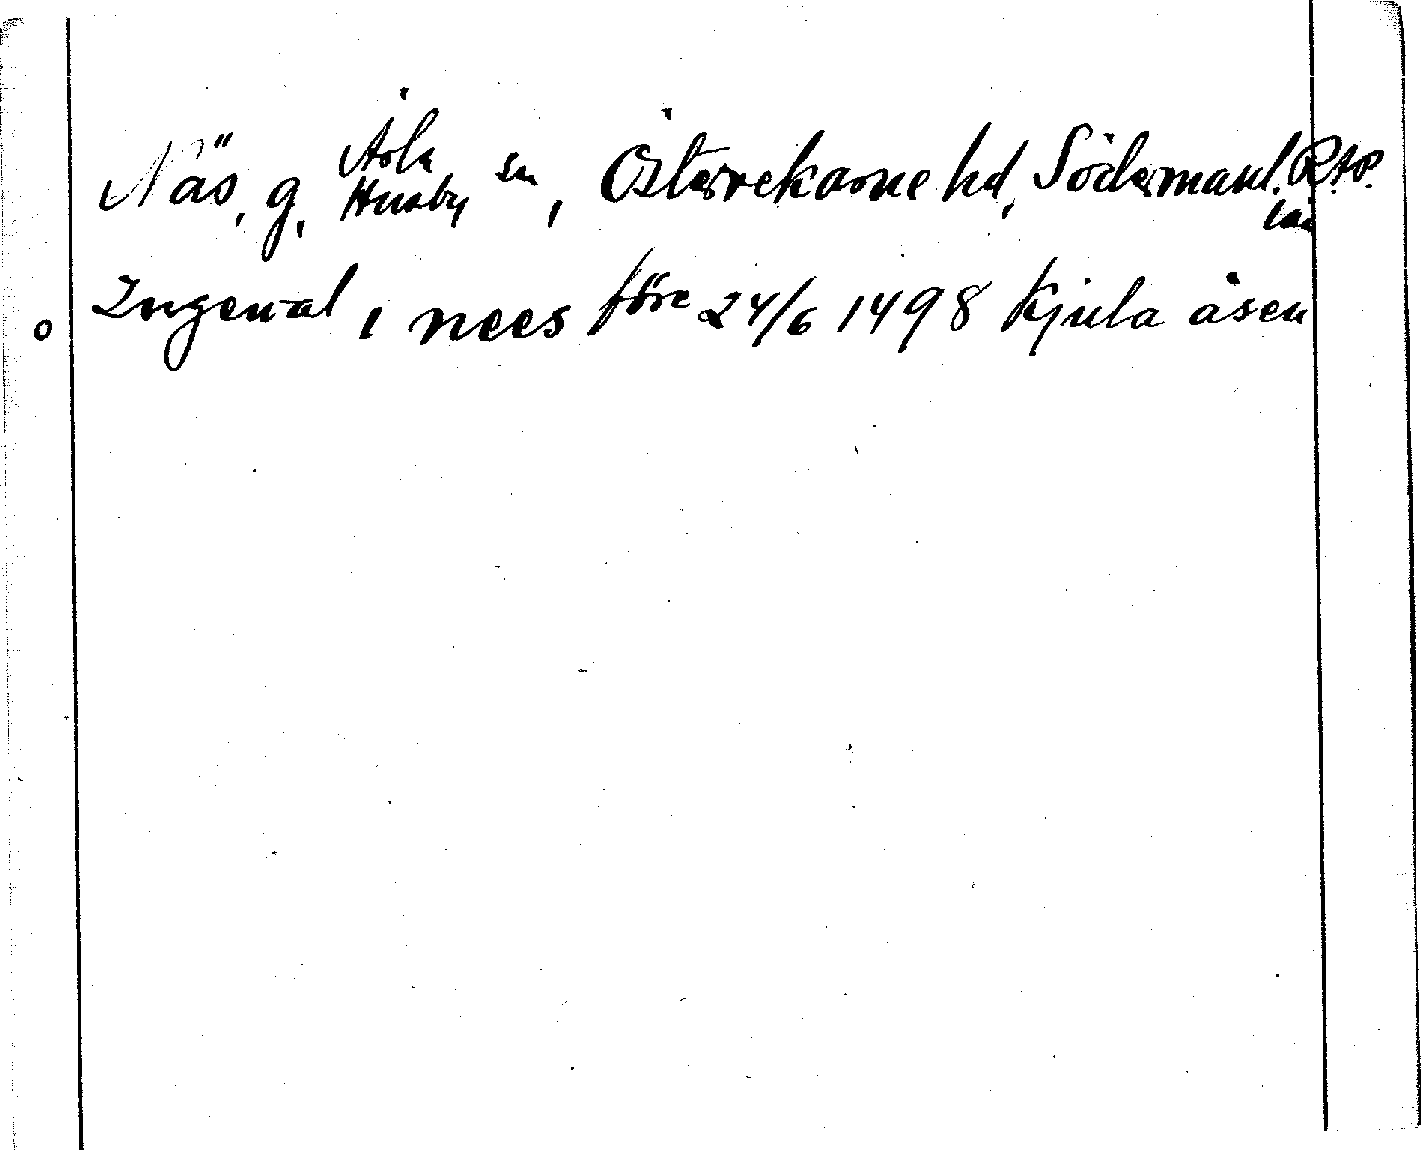 Näs, g, Ärla Husby sn, Österrekarne hd, Södermanl. R.A.P.
län
Ingeual i nees före 24/6 1498 Kjula åsen